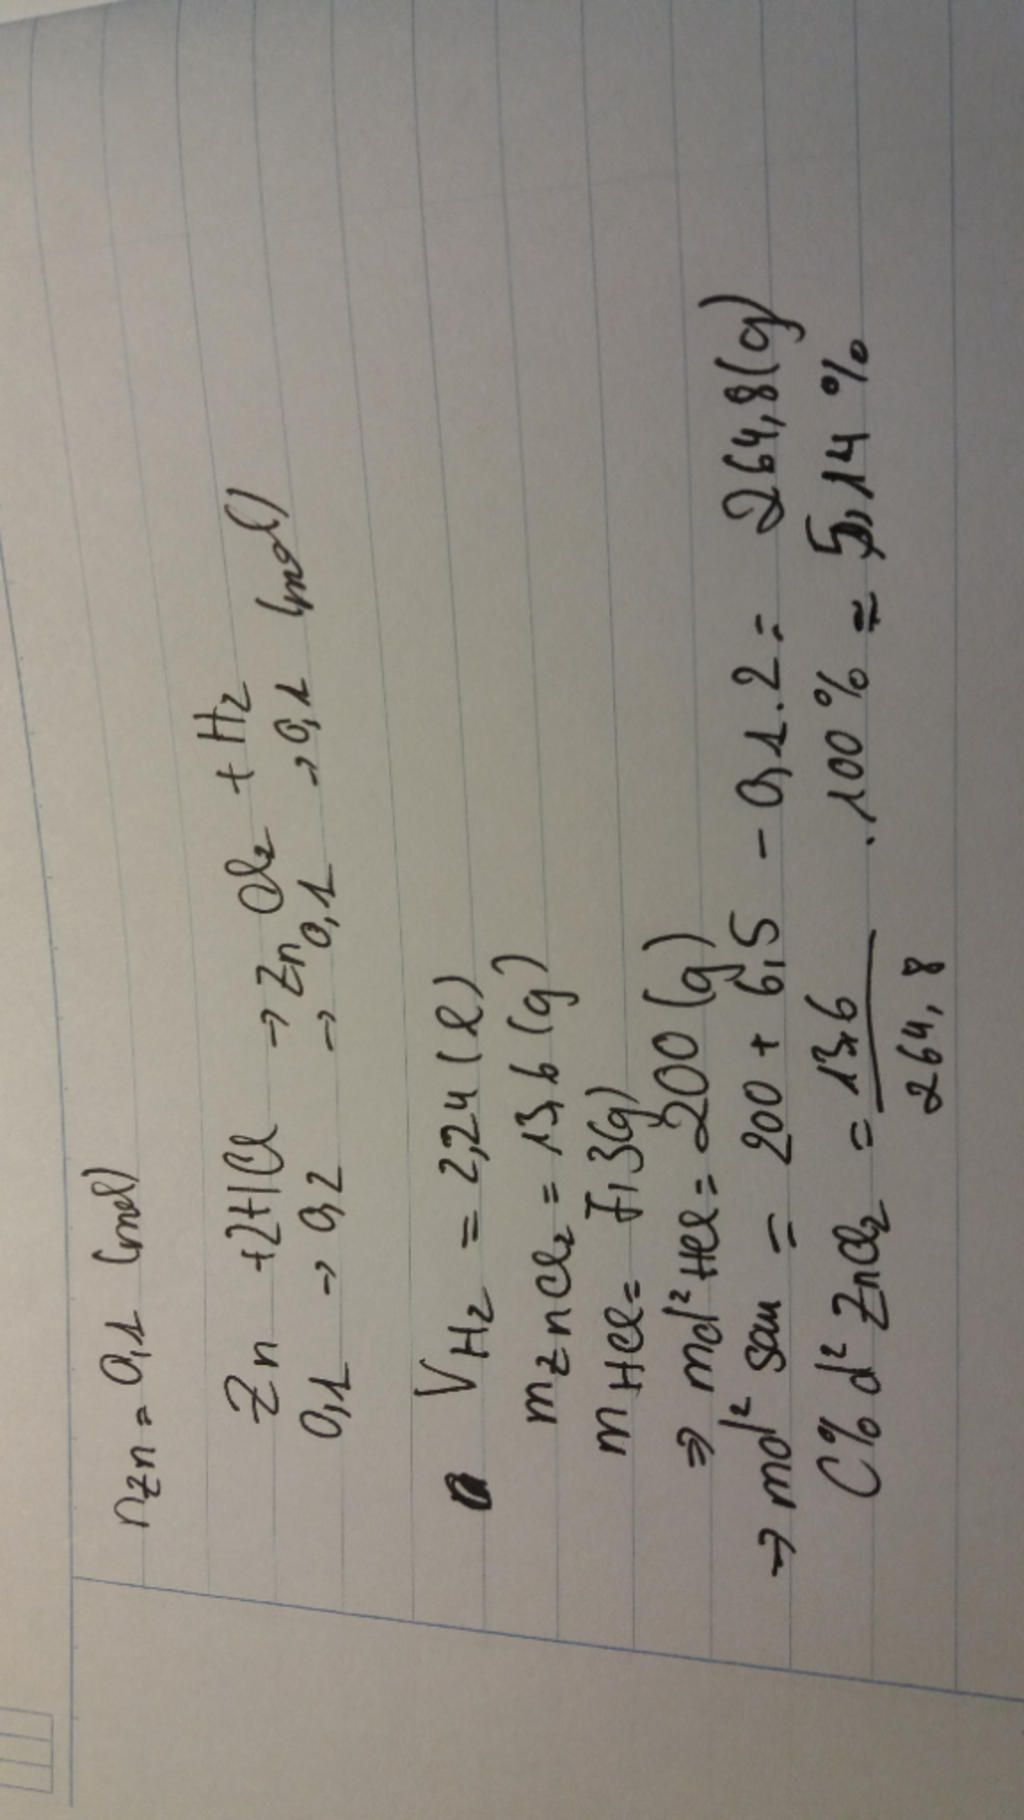 nZn = 0,1 (mol)
Zn + 2HCl → ZnCl₂ + H₂
0,1 → 0,2 → 0,1 → 0,1 (mol)
VH₂ = 2,24 (l)
mZnCl₂ = 13,6 (g)
mHCl = 7,3(g)
⇒ md² HCl = 200 (g)
→ md² sau = 200 + 6,5 - 0,1.2 = 264,8(g)
C% d² ZnCl₂ = 13,6/264,8 . 100% ≈ 5,14%